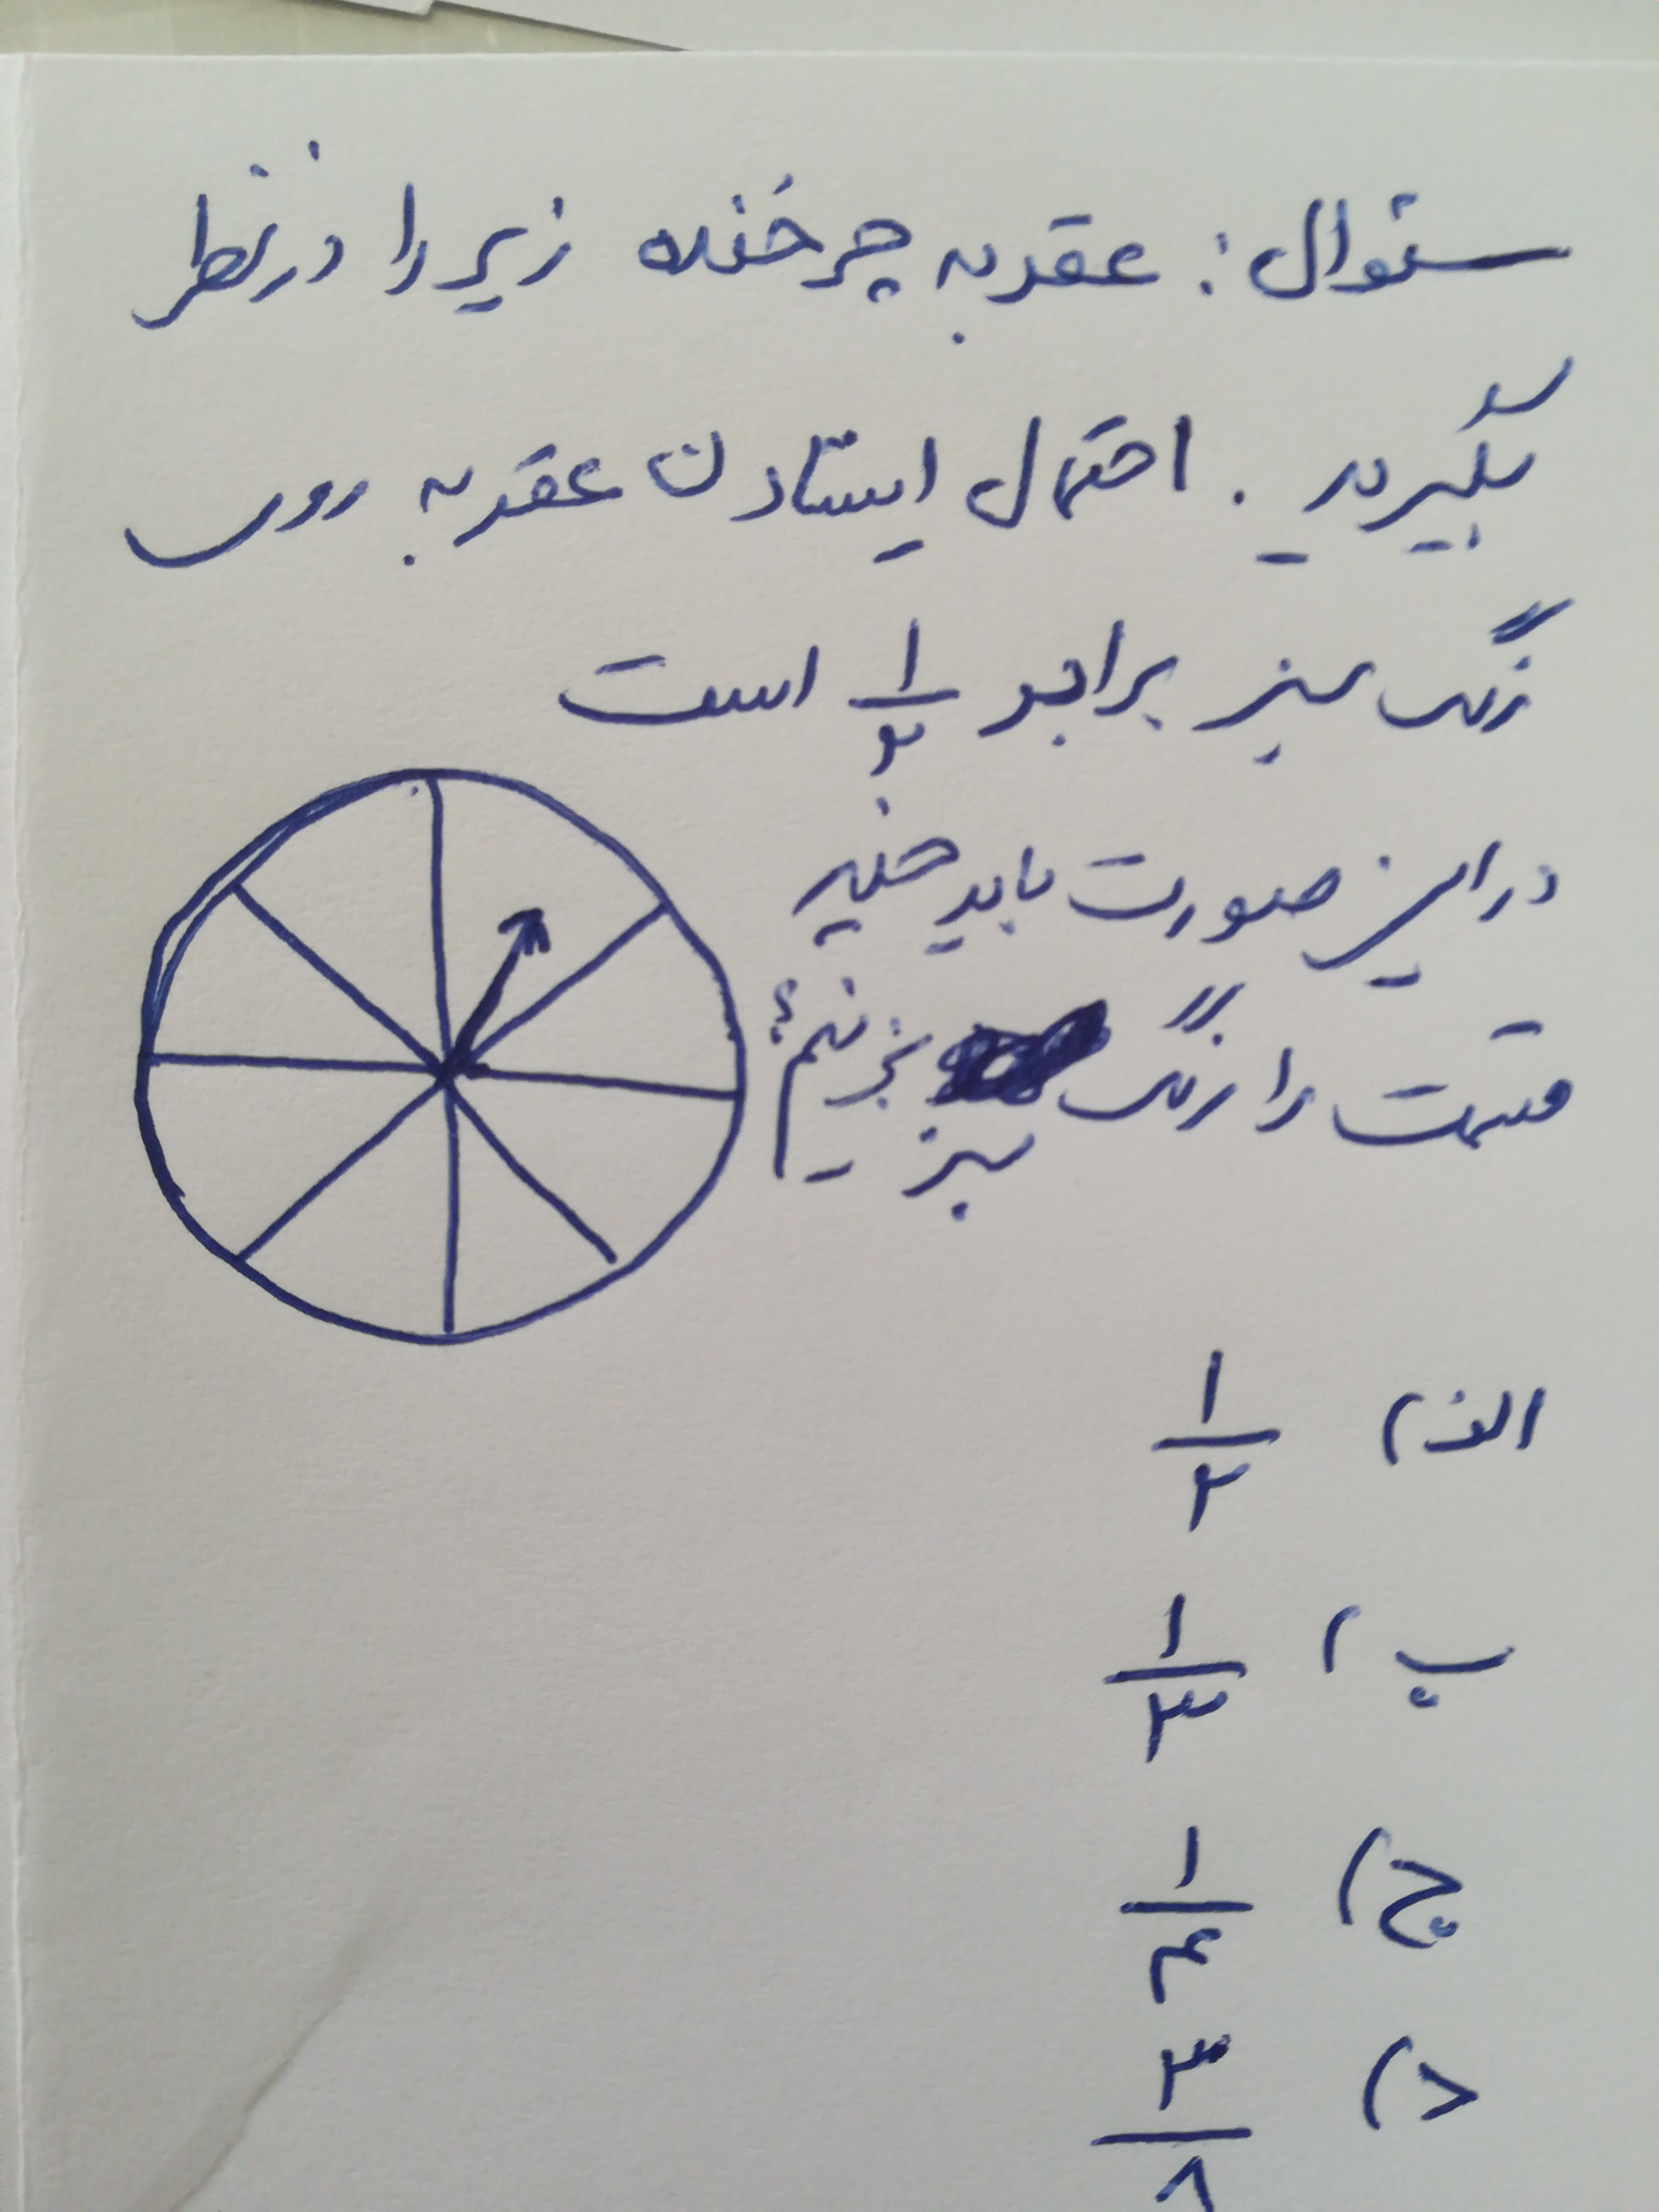 سئوال: عقربه چرخنده زیر را در نظر
بگیرید. احتمال ایستادن عقربه روی
رنگ سبز برابر ۱/۲ است
در این صورت باید چند
قسمت را رنگ سبز بزنیم؟
الف) ۱/۲
ب) ۱/۳
ج) ۱/۴
د) ۳/۸